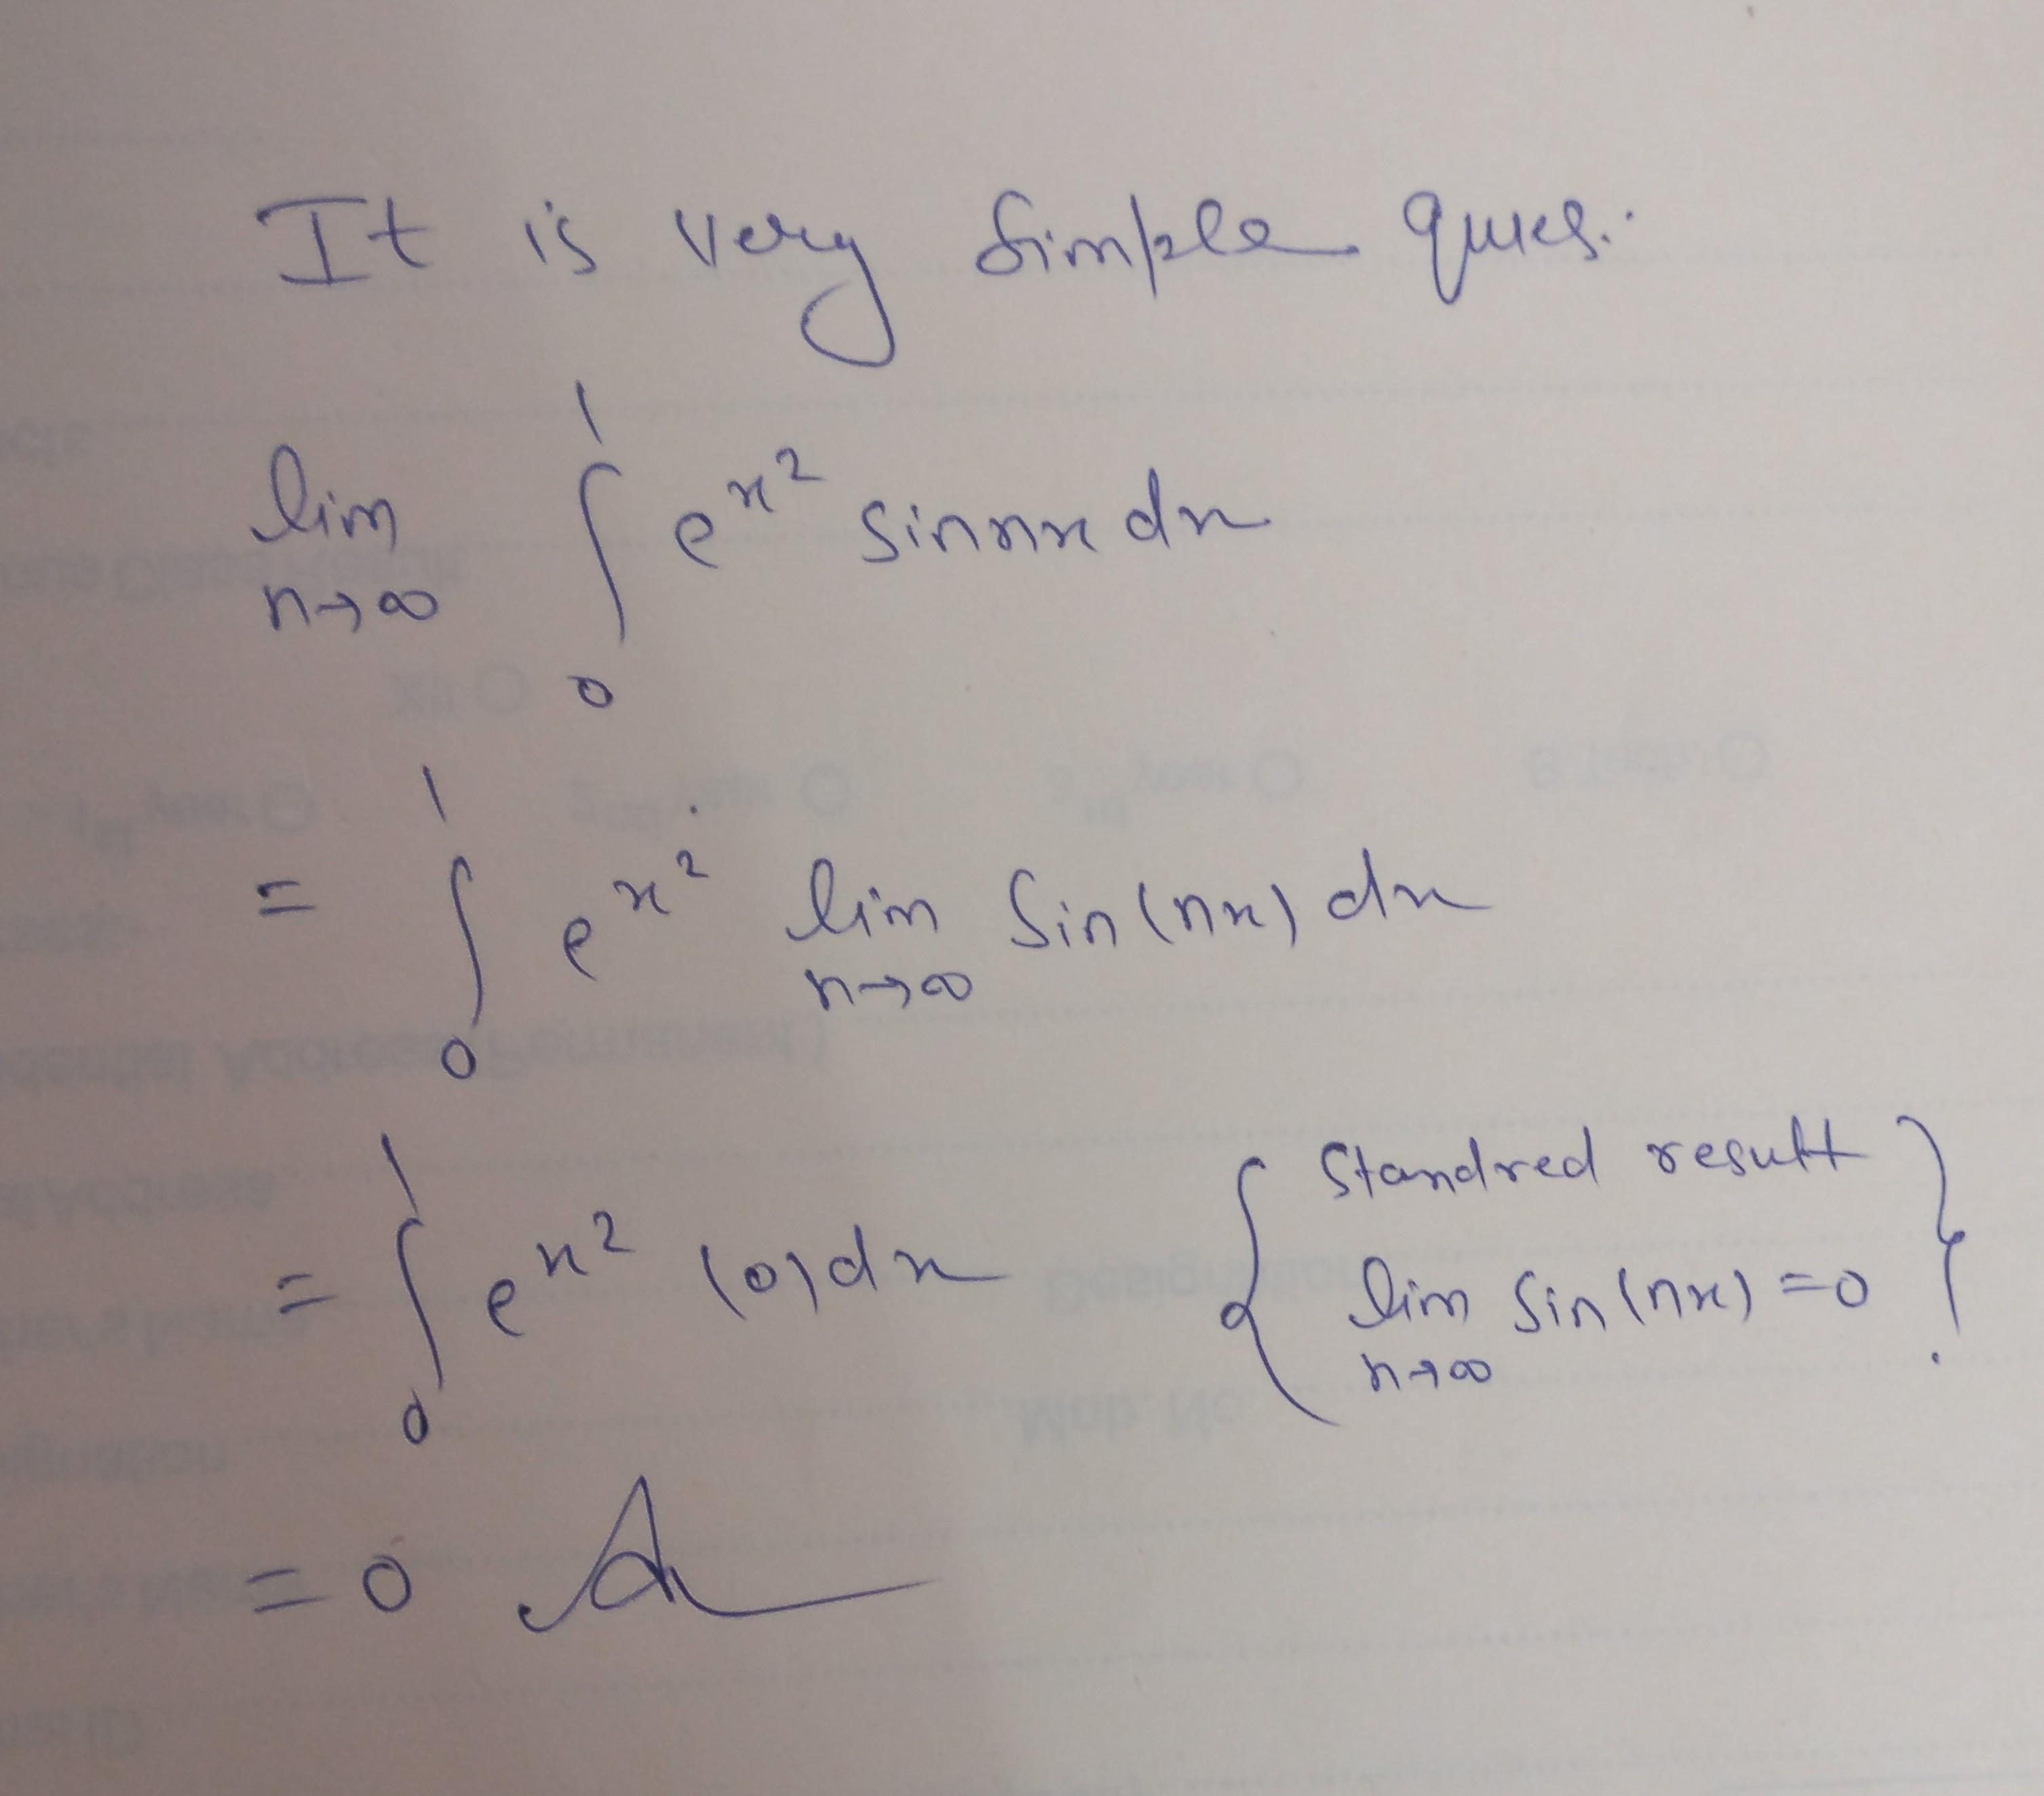 It is very simple ques.
lim n→∞ ∫₀¹ e^x² sin nx dx
= ∫₀¹ e^x² lim n→∞ sin(nx) dx
= ∫₀¹ e^x² (0) dx { Standred result lim n→∞ sin(nx) = 0 }.
= 0 A